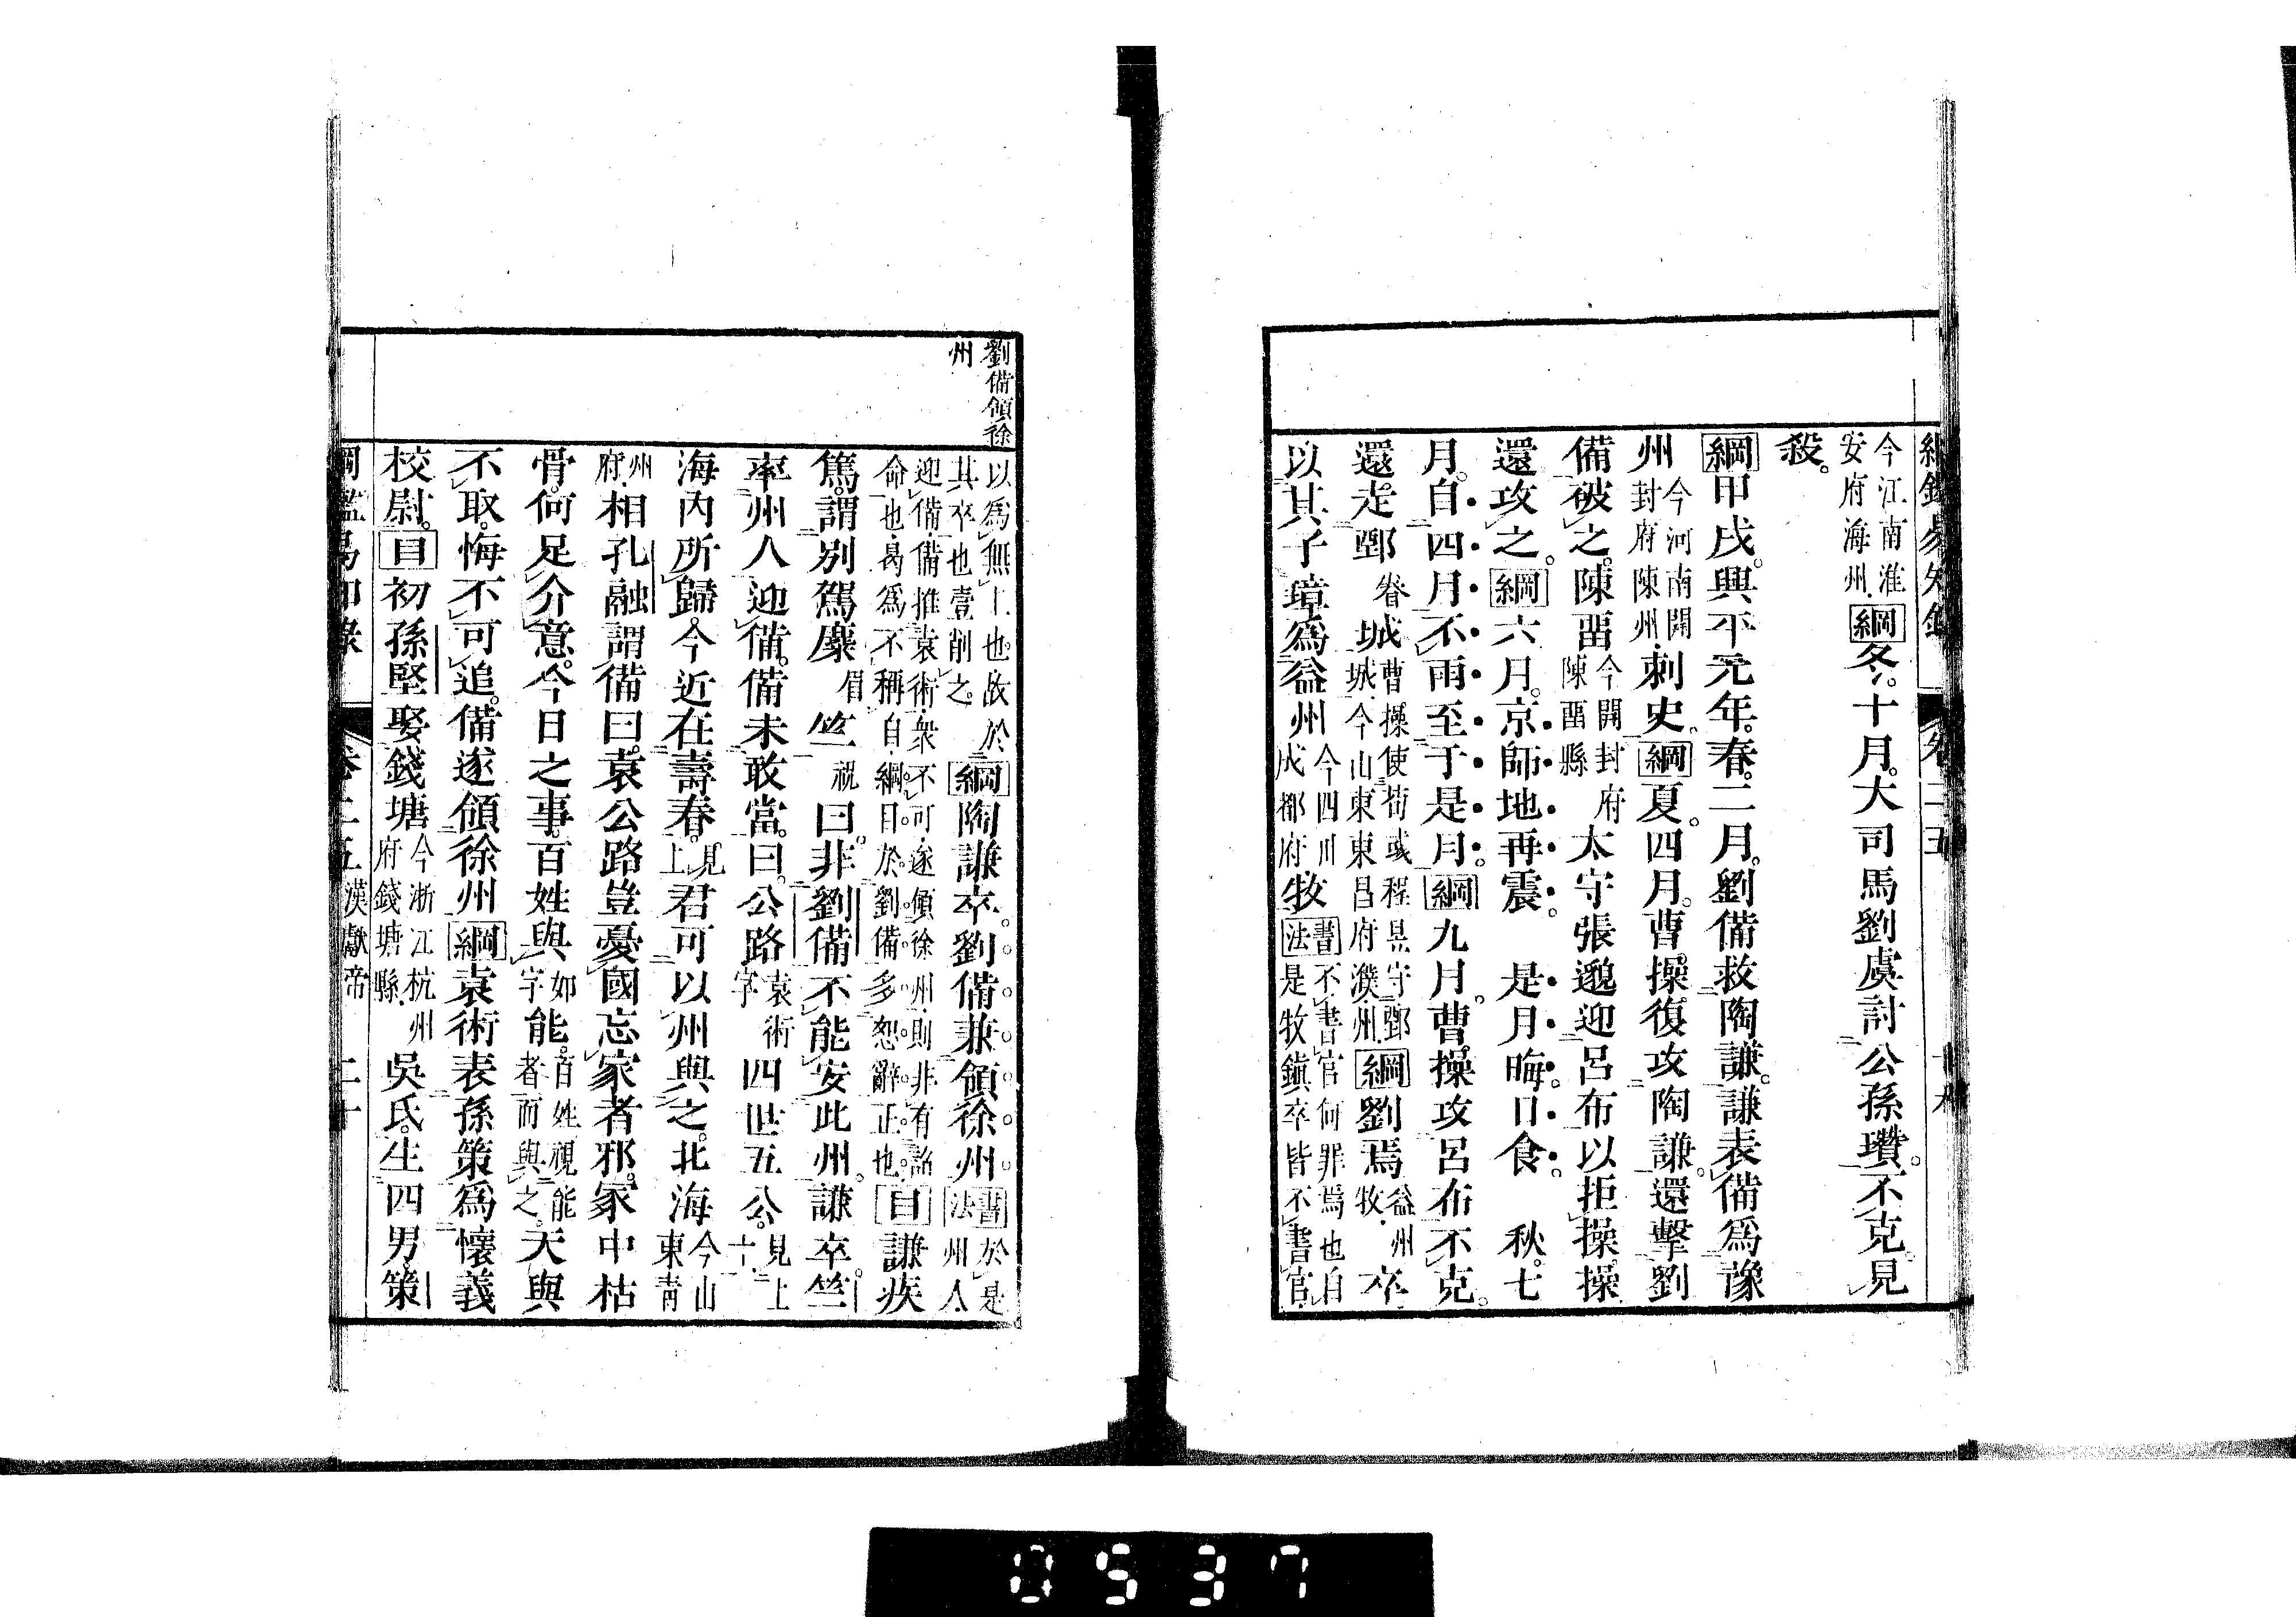 今江南淮安府海州綱冬十月大司馬劉虞討公孫瓚不克見
殺
綱甲戌興平元年春二月劉備救陶謙謙表備爲豫
州今河南開封府陳州刺史綱夏四月曹操復攻陶謙還擊劉
備破之陳畱今開封府陳畱縣太守張邈迎呂布以拒操操
還攻之綱六月京師地再震 是月晦日食 秋七
月自四月不雨至于是月綱九月曹操攻呂布不克
還走鄄眷城曹操使荀彧程昱守鄄城今山東東昌府濮州綱劉焉益州牧卒
以其子璋爲益州今四川成都府牧書法不書官何罪焉也自是牧鎮卒皆不書官
劉備領徐州
以爲無上也故於其卒也壹削之綱陶謙卒劉備兼領徐州書法於是州人
迎備備推袁術衆不可遂領徐州則非有詔命也曷爲不稱自綱目於劉備多恕辭正也目謙疾
篤謂別駕麋眉竺祝曰非劉備不能安此州謙卒竺
率州人迎備備未敢當曰公路袁術字四世五公見上十
海內所歸今近在壽春見上君可以州與之北海今山東靑
州府相孔融謂備曰袁公路豈憂國忘家者邪冢中枯
骨何足介意今日之事百姓與如字能百姓視能者而與之天與
不取悔不可追備遂領徐州綱袁術表孫策爲懷義
校尉目初孫堅娶錢塘今浙江杭州府錢塘縣吳氏生四男策
卷二五 漢獻帝 二十
0537